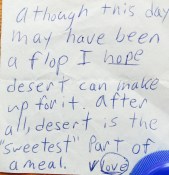 although this day
may have been
a flop I hope
desert can make
up for it. After
all, desert is the
"sweetest" part of
a meal. love